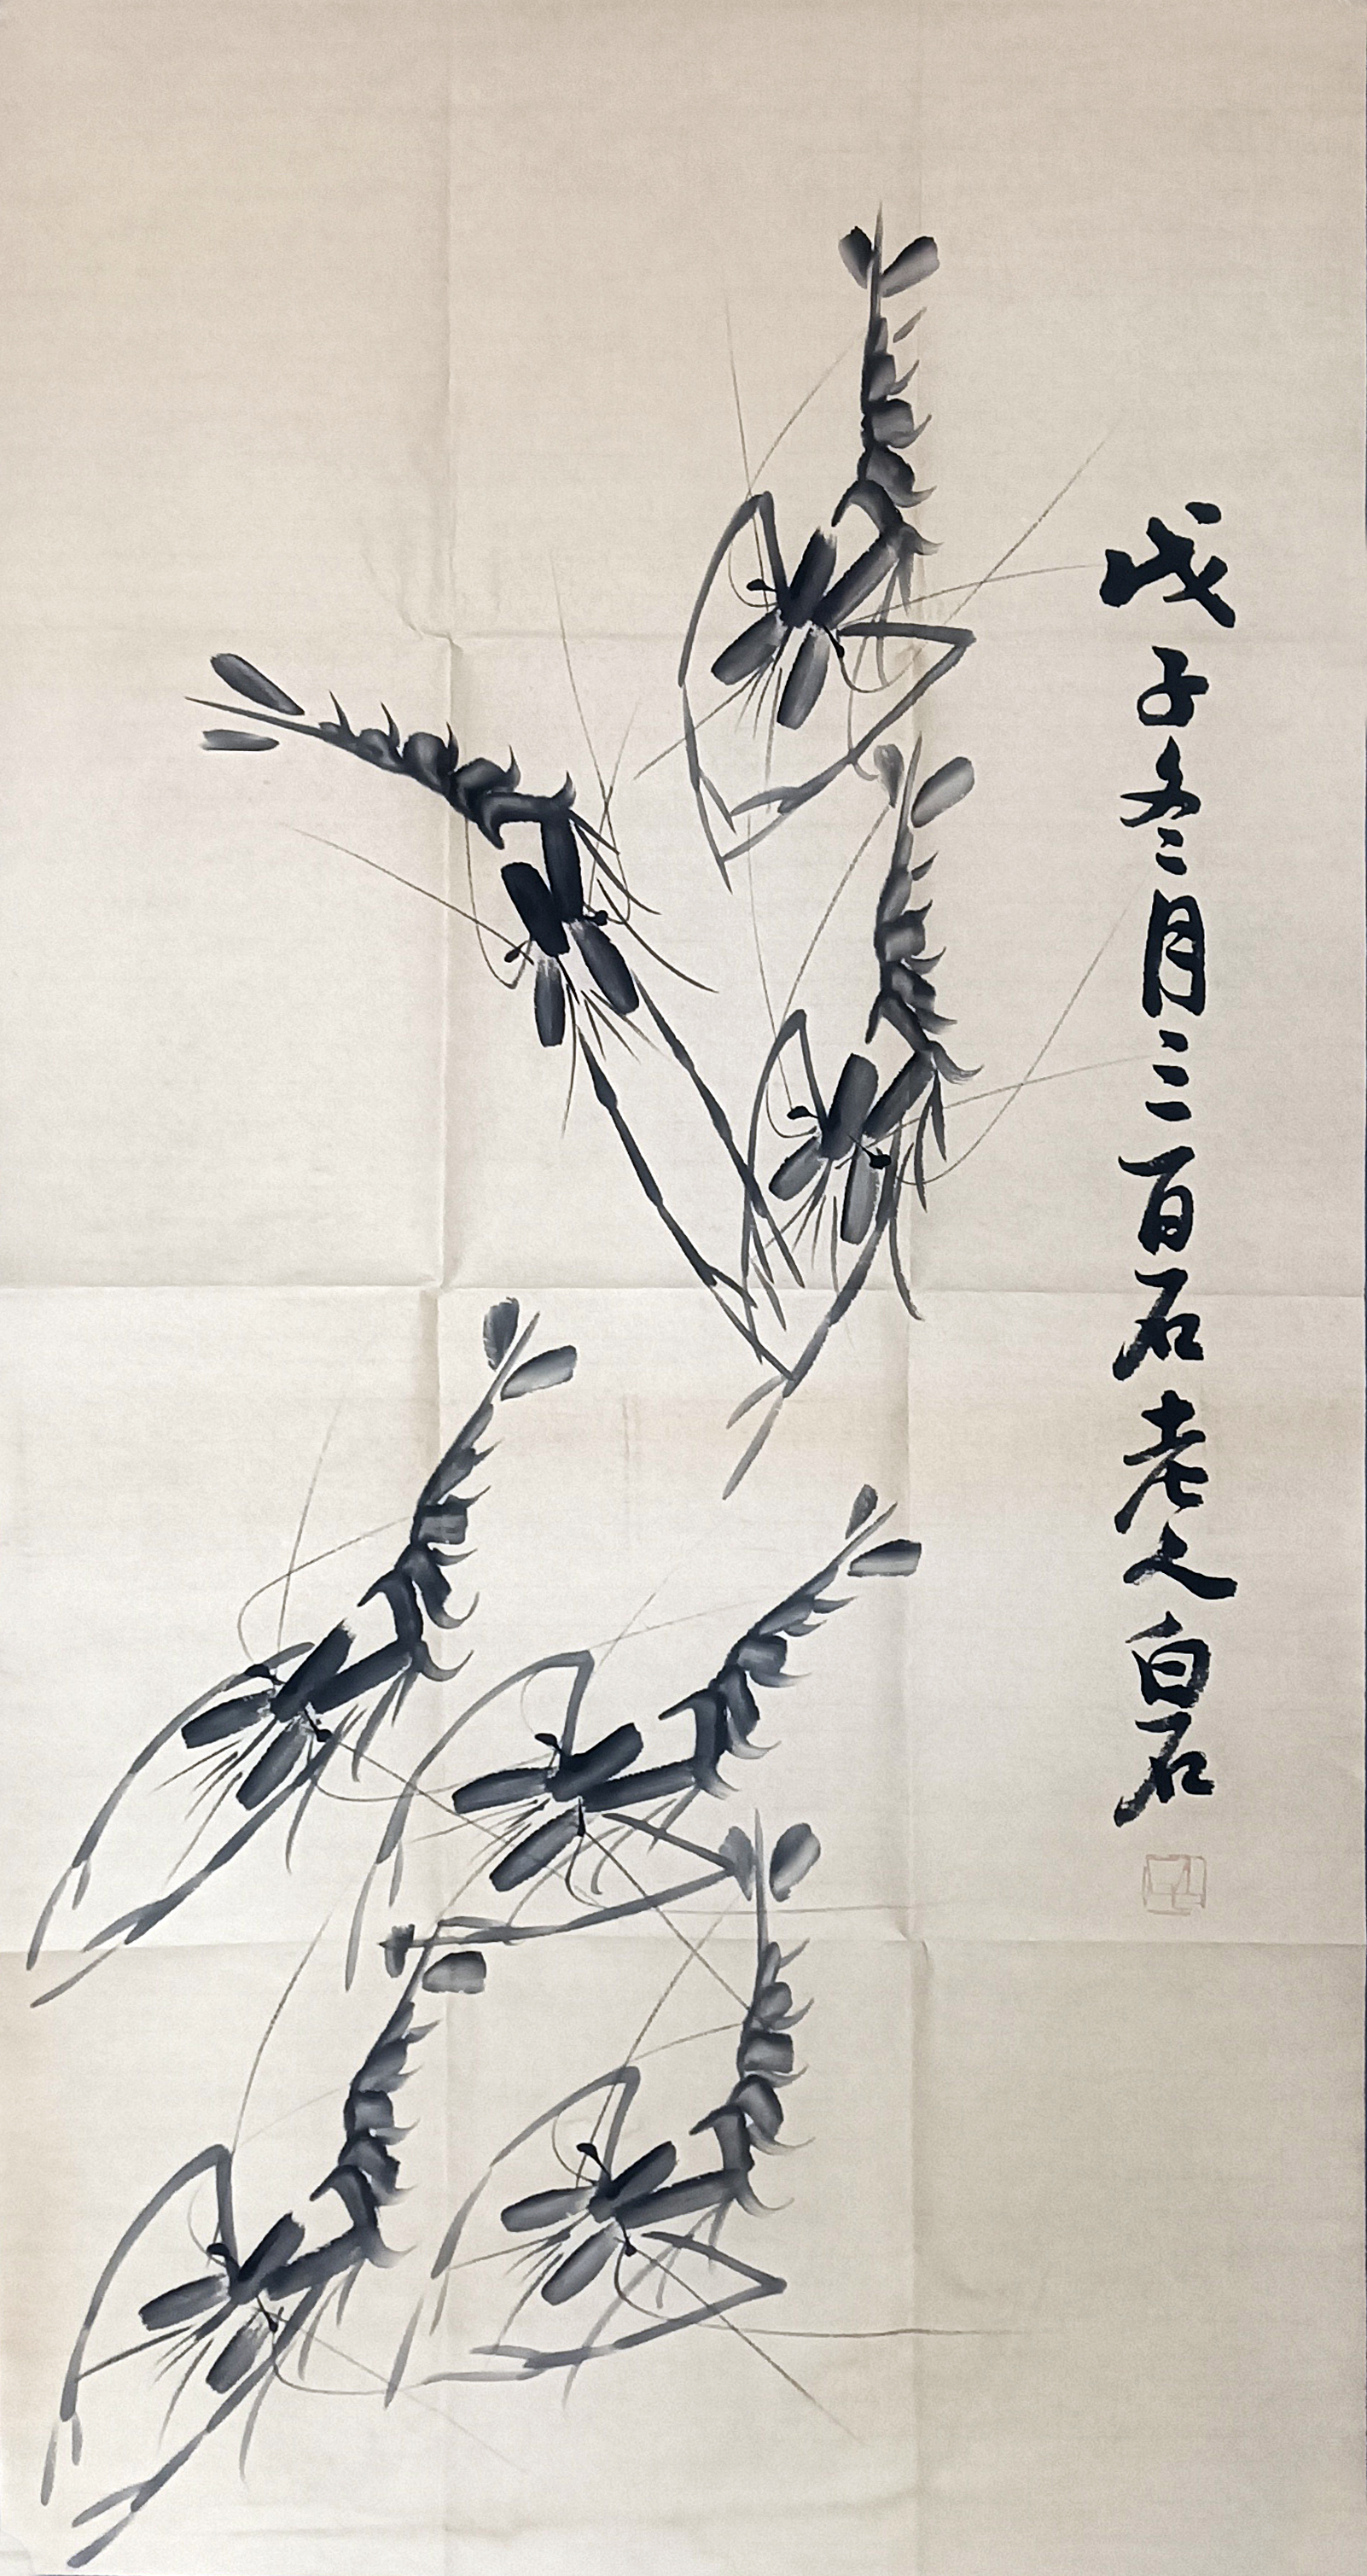 戊子冬月三百石老人白石